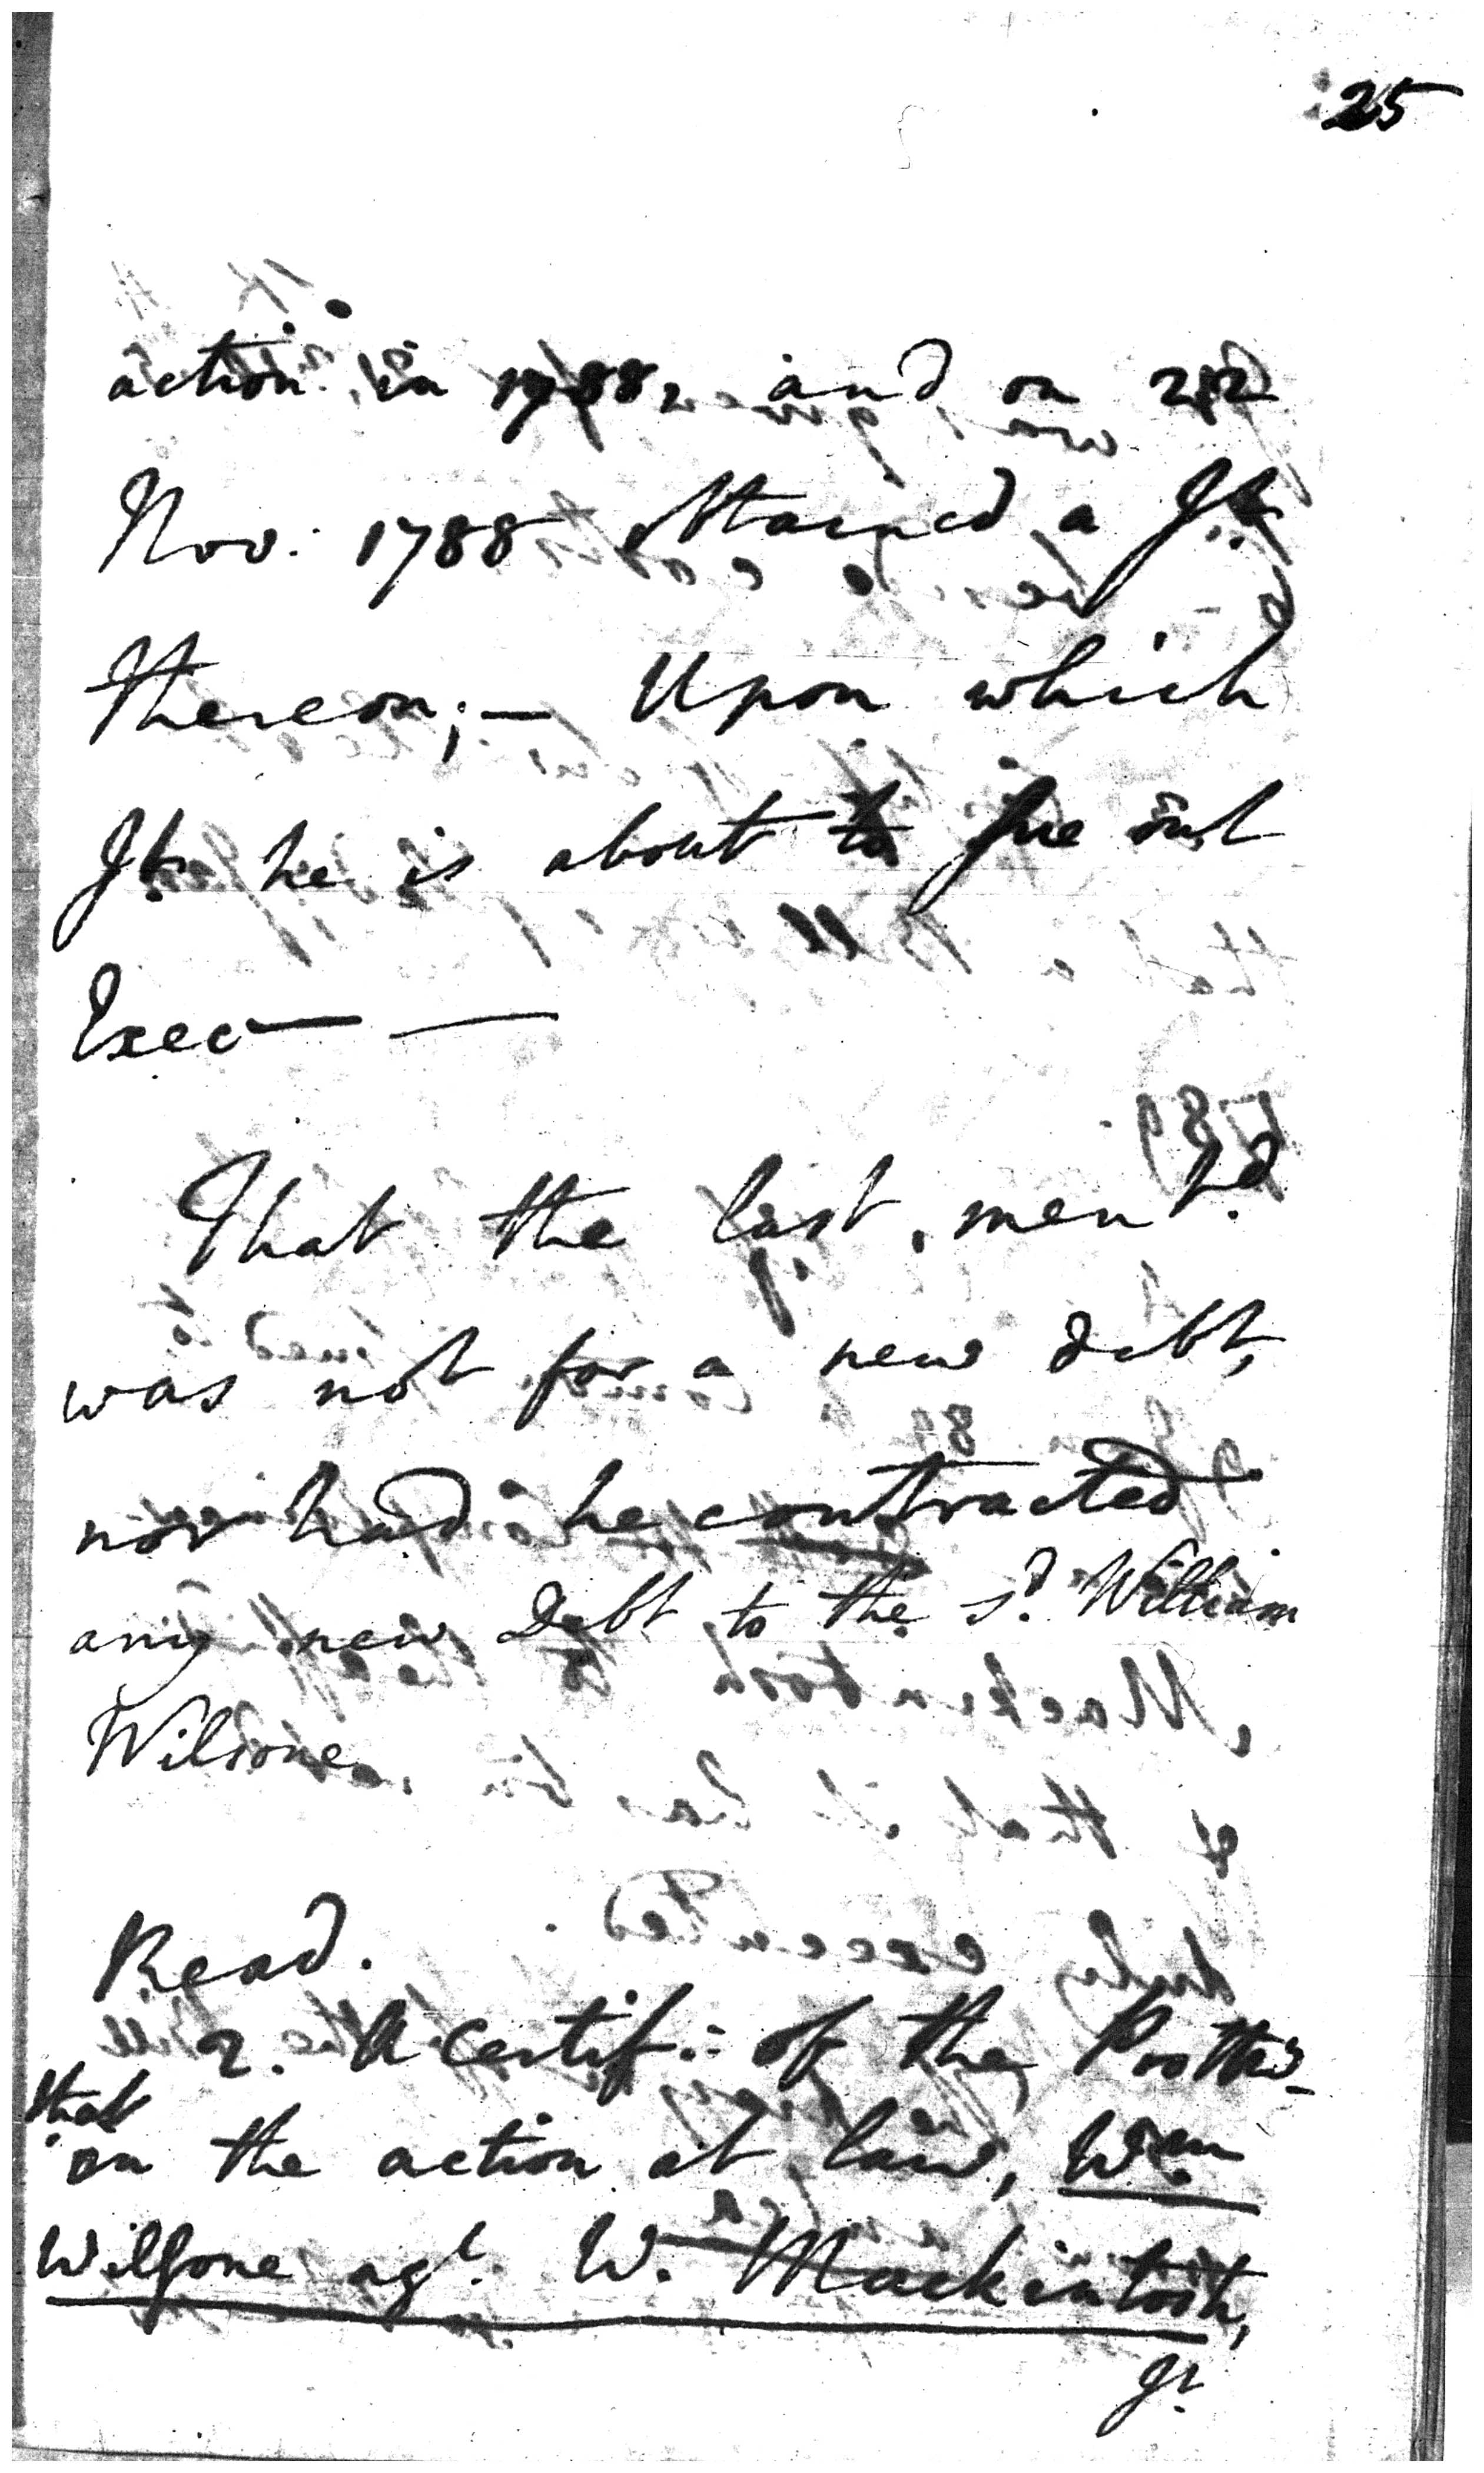 25
action in 1788, and on 22d
Nov: 1788 obtained a Jt.
thereon;— Upon which
Jt. he is about to sue out
Exec— —
That the last, ment.d
was not for a new debt,
nor had he contracted
any new Debt to the sd. William
Wilsone
Read.
2. A certif: of the Prothy
that
in the action at law, Wm.
Wilsone agt. W. Mackintosh,
Jt.